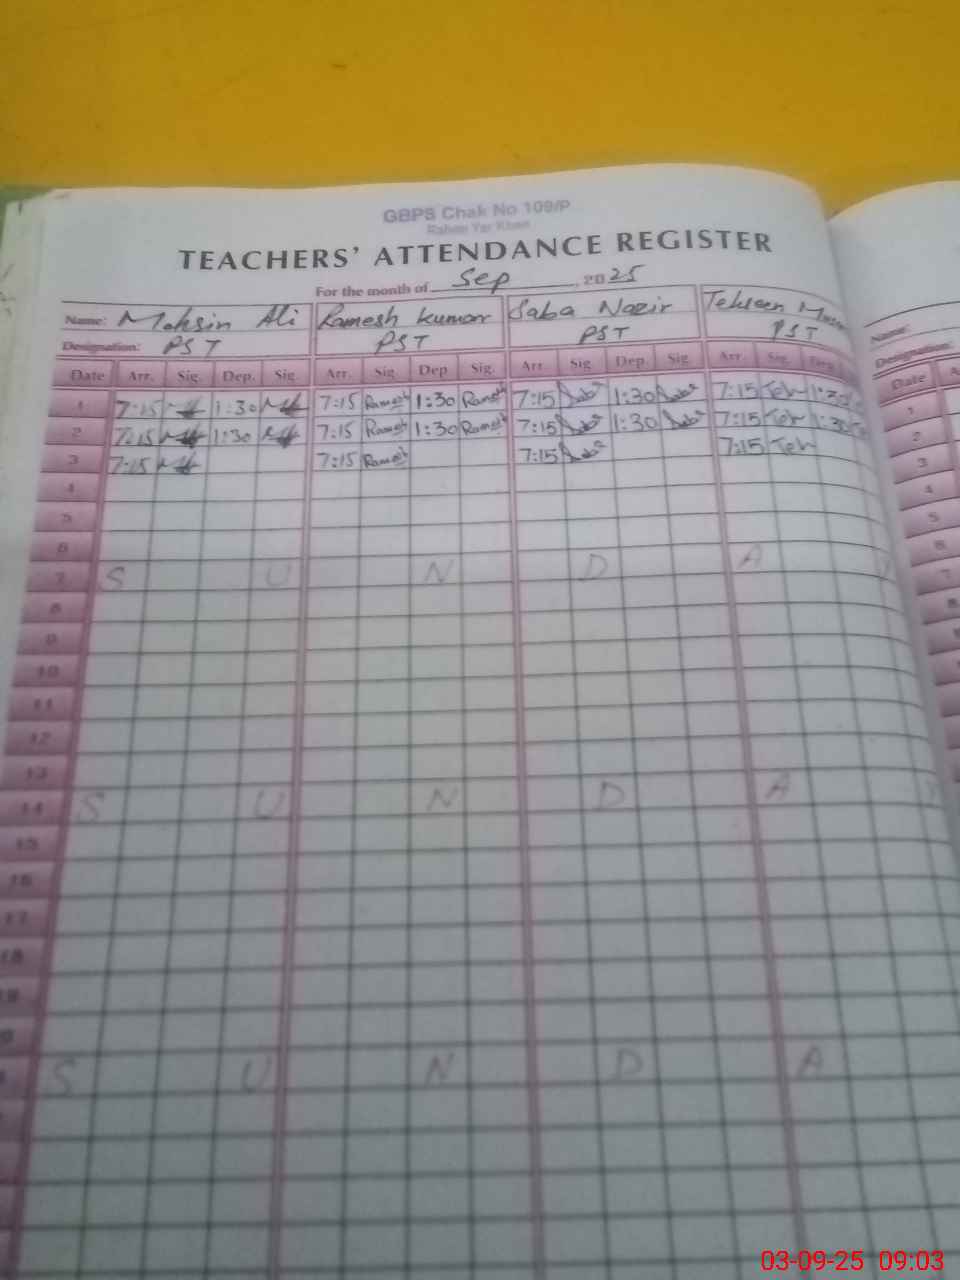 GBPS Chak No 109/P
Rahim Yar Khan
TEACHERS' ATTENDANCE REGISTER
For the month of Sep, 2025
Name: Mohsin Ali Ramesh Kumar Saba Nazir Tehseen
Designation: PST PST PST PST
Date Arr. Sig. Dep. Sig. Arr. Sig Dep Sig. Arr. Sig Dep. Sig. Arr. Sig. Dep.
1 7:15 1:30 7:15 Ramesh 1:30 Ramesh 7:15 Saba 1:30 Saba 7:15 Teh 1:30
2 7:15 1:30 7:15 Ramesh 1:30 Ramesh 7:15 Saba 1:30 Saba 7:15 Teh 1:30
3 7:15 7:15 Ramesh 7:15 Saba 7:15 Teh
4
5
6
7 S U N D A Y
8
9
10
11
12
13
14 S U N D A Y
15
16
17
18
19
S U N D A
Name:
Designation:
Date A
1
2
3
4
5
6
7
8
9
10
11
12
03-09-25 09:03